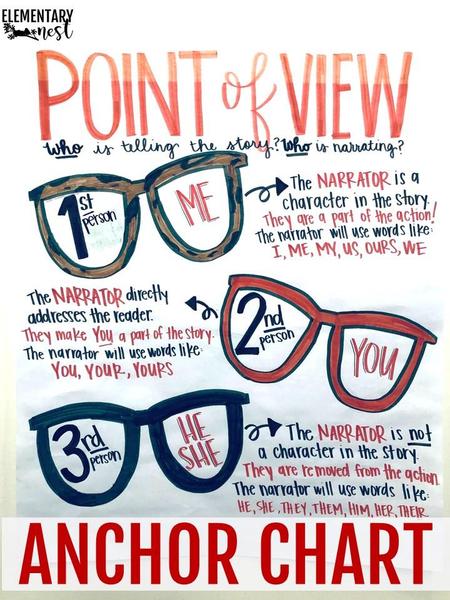 ELEMENTARY
nest
POINT of VIEW
Who is telling the story? Who is narrating?
1st person
ME
The NARRATOR is a
character in the story.
They are a part of the action!
The narrator will use words like:
I, ME, MY, US, OURS, WE
The NARRATOR directly
addresses the reader.
They make YOU a part of the story.
The narrator will use words like:
YOU, YOUR, YOURS
2nd person
YOU
3rd person
HE
SHE
The NARRATOR is not
a character in the story.
They are removed from the action.
The narrator will use words like:
HE, SHE, THEY, THEM, HIM, HER, THEIR
ANCHOR CHART